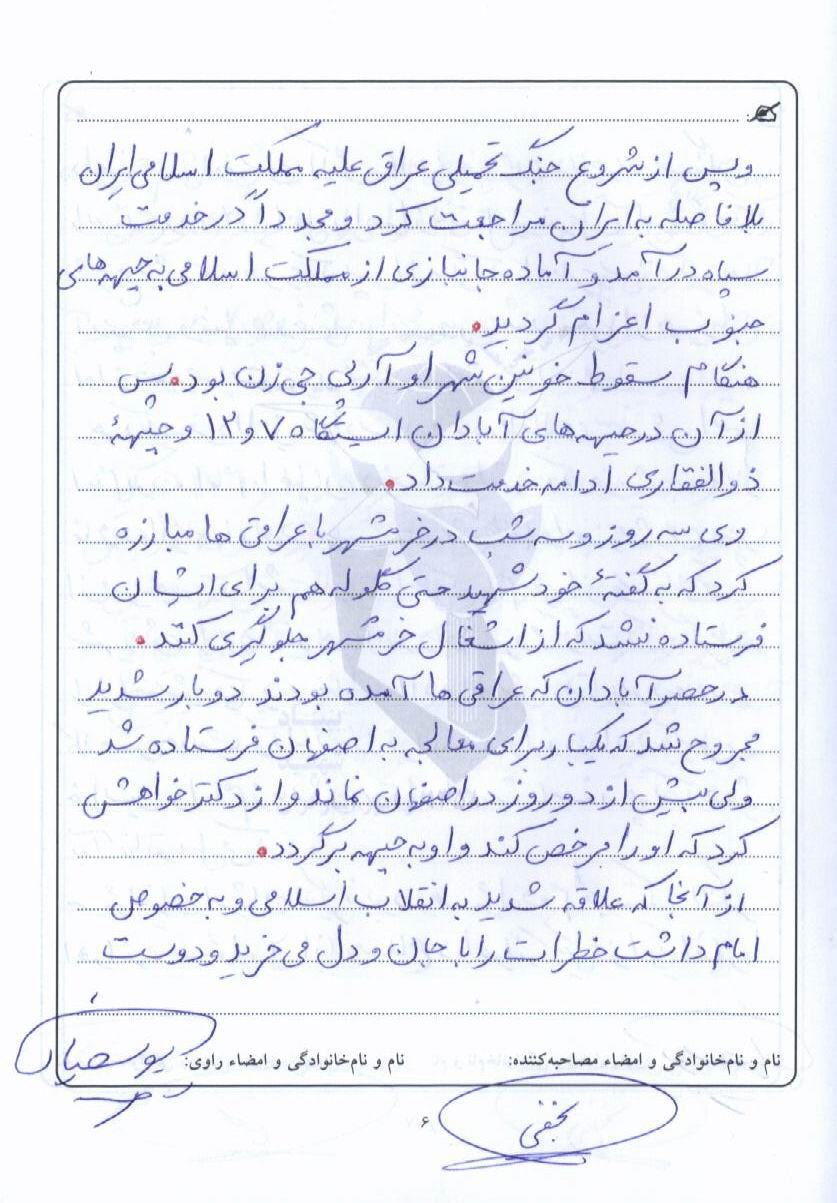 وپس از شروع جنگ تحمیلی عراق علیه مملکت اسلامی ایران
بلافاصله به ایران مراجعت کرد و مجدداً در خدمت
سپاه درآمد و آماده جانبازی از مملکت اسلامی به جبهه های
جنوب اعزام گردید.
هنگام سقوط خونین شهر او آر پی جی زن بود. پس
از آن در جبهه های آبادان ایستگاه ۷ و ۱۲ و جبههٔ
ذوالفقاری ادامه خدمت داد.
وی سه روز و سه شب در خرمشهر با عراقی ها مبارزه
کرد که به گفتهٔ خود شهید حتی گلوله هم برای ایشان
فرستاده نشد که از اشغال خرمشهر جلوگیری کنند.
در حصر آبادان که عراقی ها آمده بودند دوبار شدید
مجروح شد که یکبار برای معالجه به اصفهان فرستاده شد
ولی بیش از دو روز در اصفهان نماند و از دکتر خواهش
کرد که او را مرخص کند و او به جبهه برگردد.
از آنجا که علاقه شدید به انقلاب اسلامی و به خصوص
امام داشت خطرات را با جان و دل می خرید و دوست
نام و نام‌خانوادگی و امضاء مصاحبه‌کننده: نام و نام‌خانوادگی و امضاء راوی:
نجفی
۶